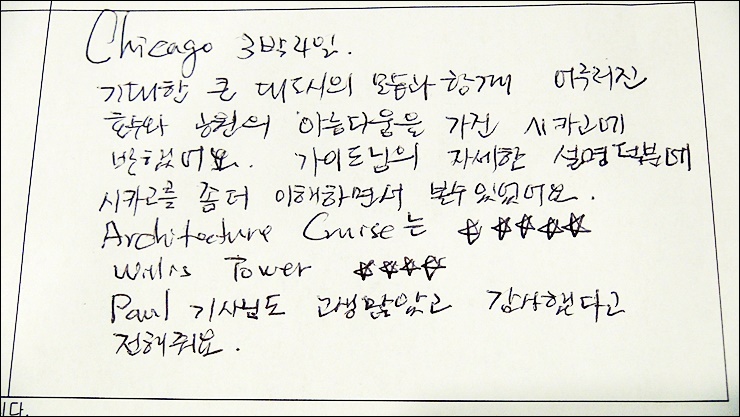 Chicago 3박4일.
기대한 큰 대도시의 모습과 함께 어우러진
호수와 공원의 아름다움을 가진 시카고에
반했어요. 가이드님의 자세한 설명덕분에
시카고를 좀더 이해하면서 볼수있었어요.
Architecture Cruise는 ☆☆☆☆☆
Willis Tower ☆☆☆☆
Paul 기사님도 고생많았고 감사했다고
전해줘요.
니다.